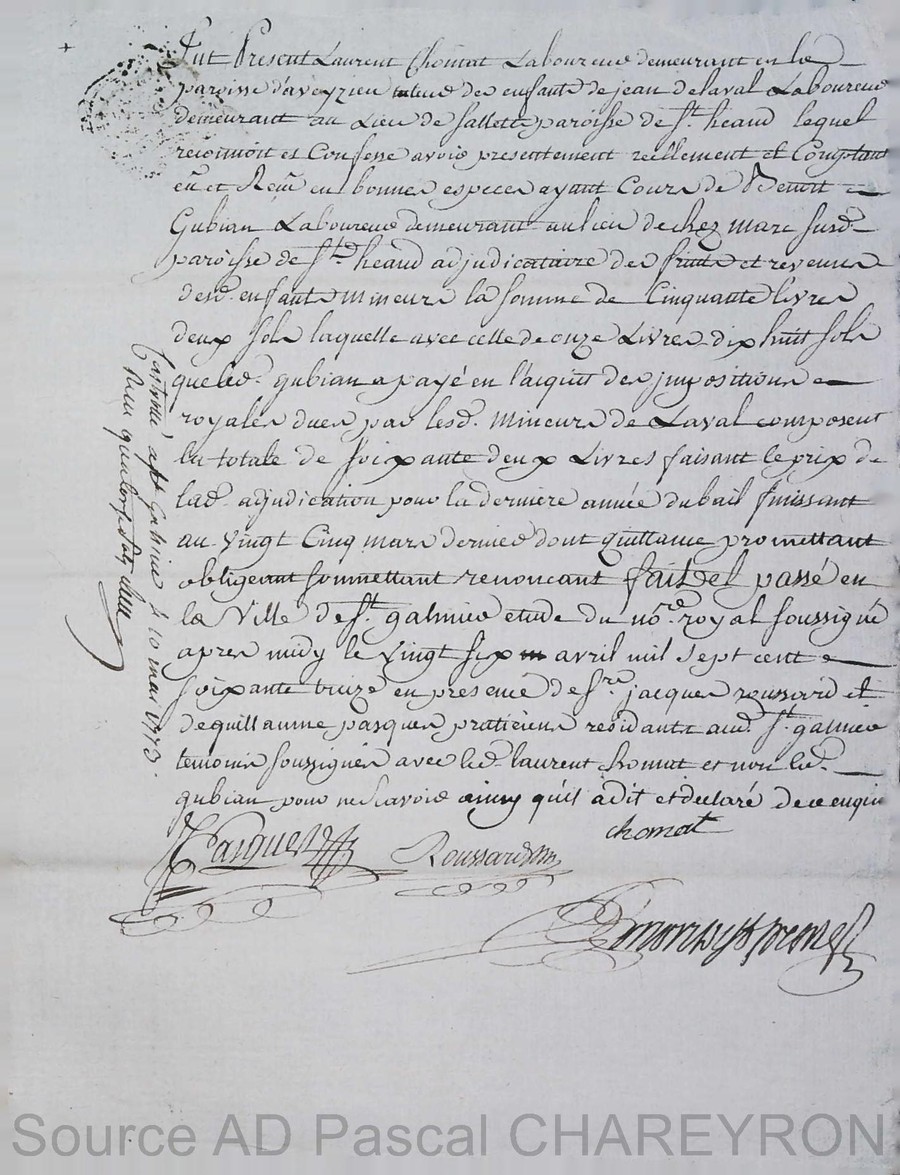 Fut Present Laurent Chomat Laboureur demeurant en la
paroisse d'aveyzieu tuteur des enfants de jean delaval Laboureur
demeurant au Lieu de sallette paroisse de St. heand lequel
reconnoit et Confesse avoir presentement reellement et Comptant
eû et Reçû en bonnes especes ayant Cours de Benoit
Gubian Laboureur demeurant au lieu de chez marc susd.
paroisse de St. heand adjudicataire des fruits et revenus
desd. enfants mineurs la somme de Cinquante livres
deux sols laquelle avec celle de onze Livres dix huit sols
que led. gubian a payé en l'acquit des impositions
royales dues par lesd. mineurs de Laval composent
la totale de soixante deux Livres faisant le prix de
lad. adjudication pour la derniere année du bail finissant
au vingt Cinq mars dernier dont quittance promettant
obligeant soumettant renoncant fait et passé en
la Ville de St. galmier etude du nore. royal soussigné
apres midy le vingt six avril mil sept cent
soixante treize en presence de sr. jacques roussard et
de guillaume pasquer praticiens residants aud. St. galmier
temoins soussignés avec led. laurent Chomat et non led.
gubian pour ne scavoir ainsy qu'il a dit et declaré de ce enquis
chomat
Pasquer Roussard
Controllé a St Galmier le 10 mai 1773.
Reçu quatorze sols
Source AD Pascal CHAREYRON